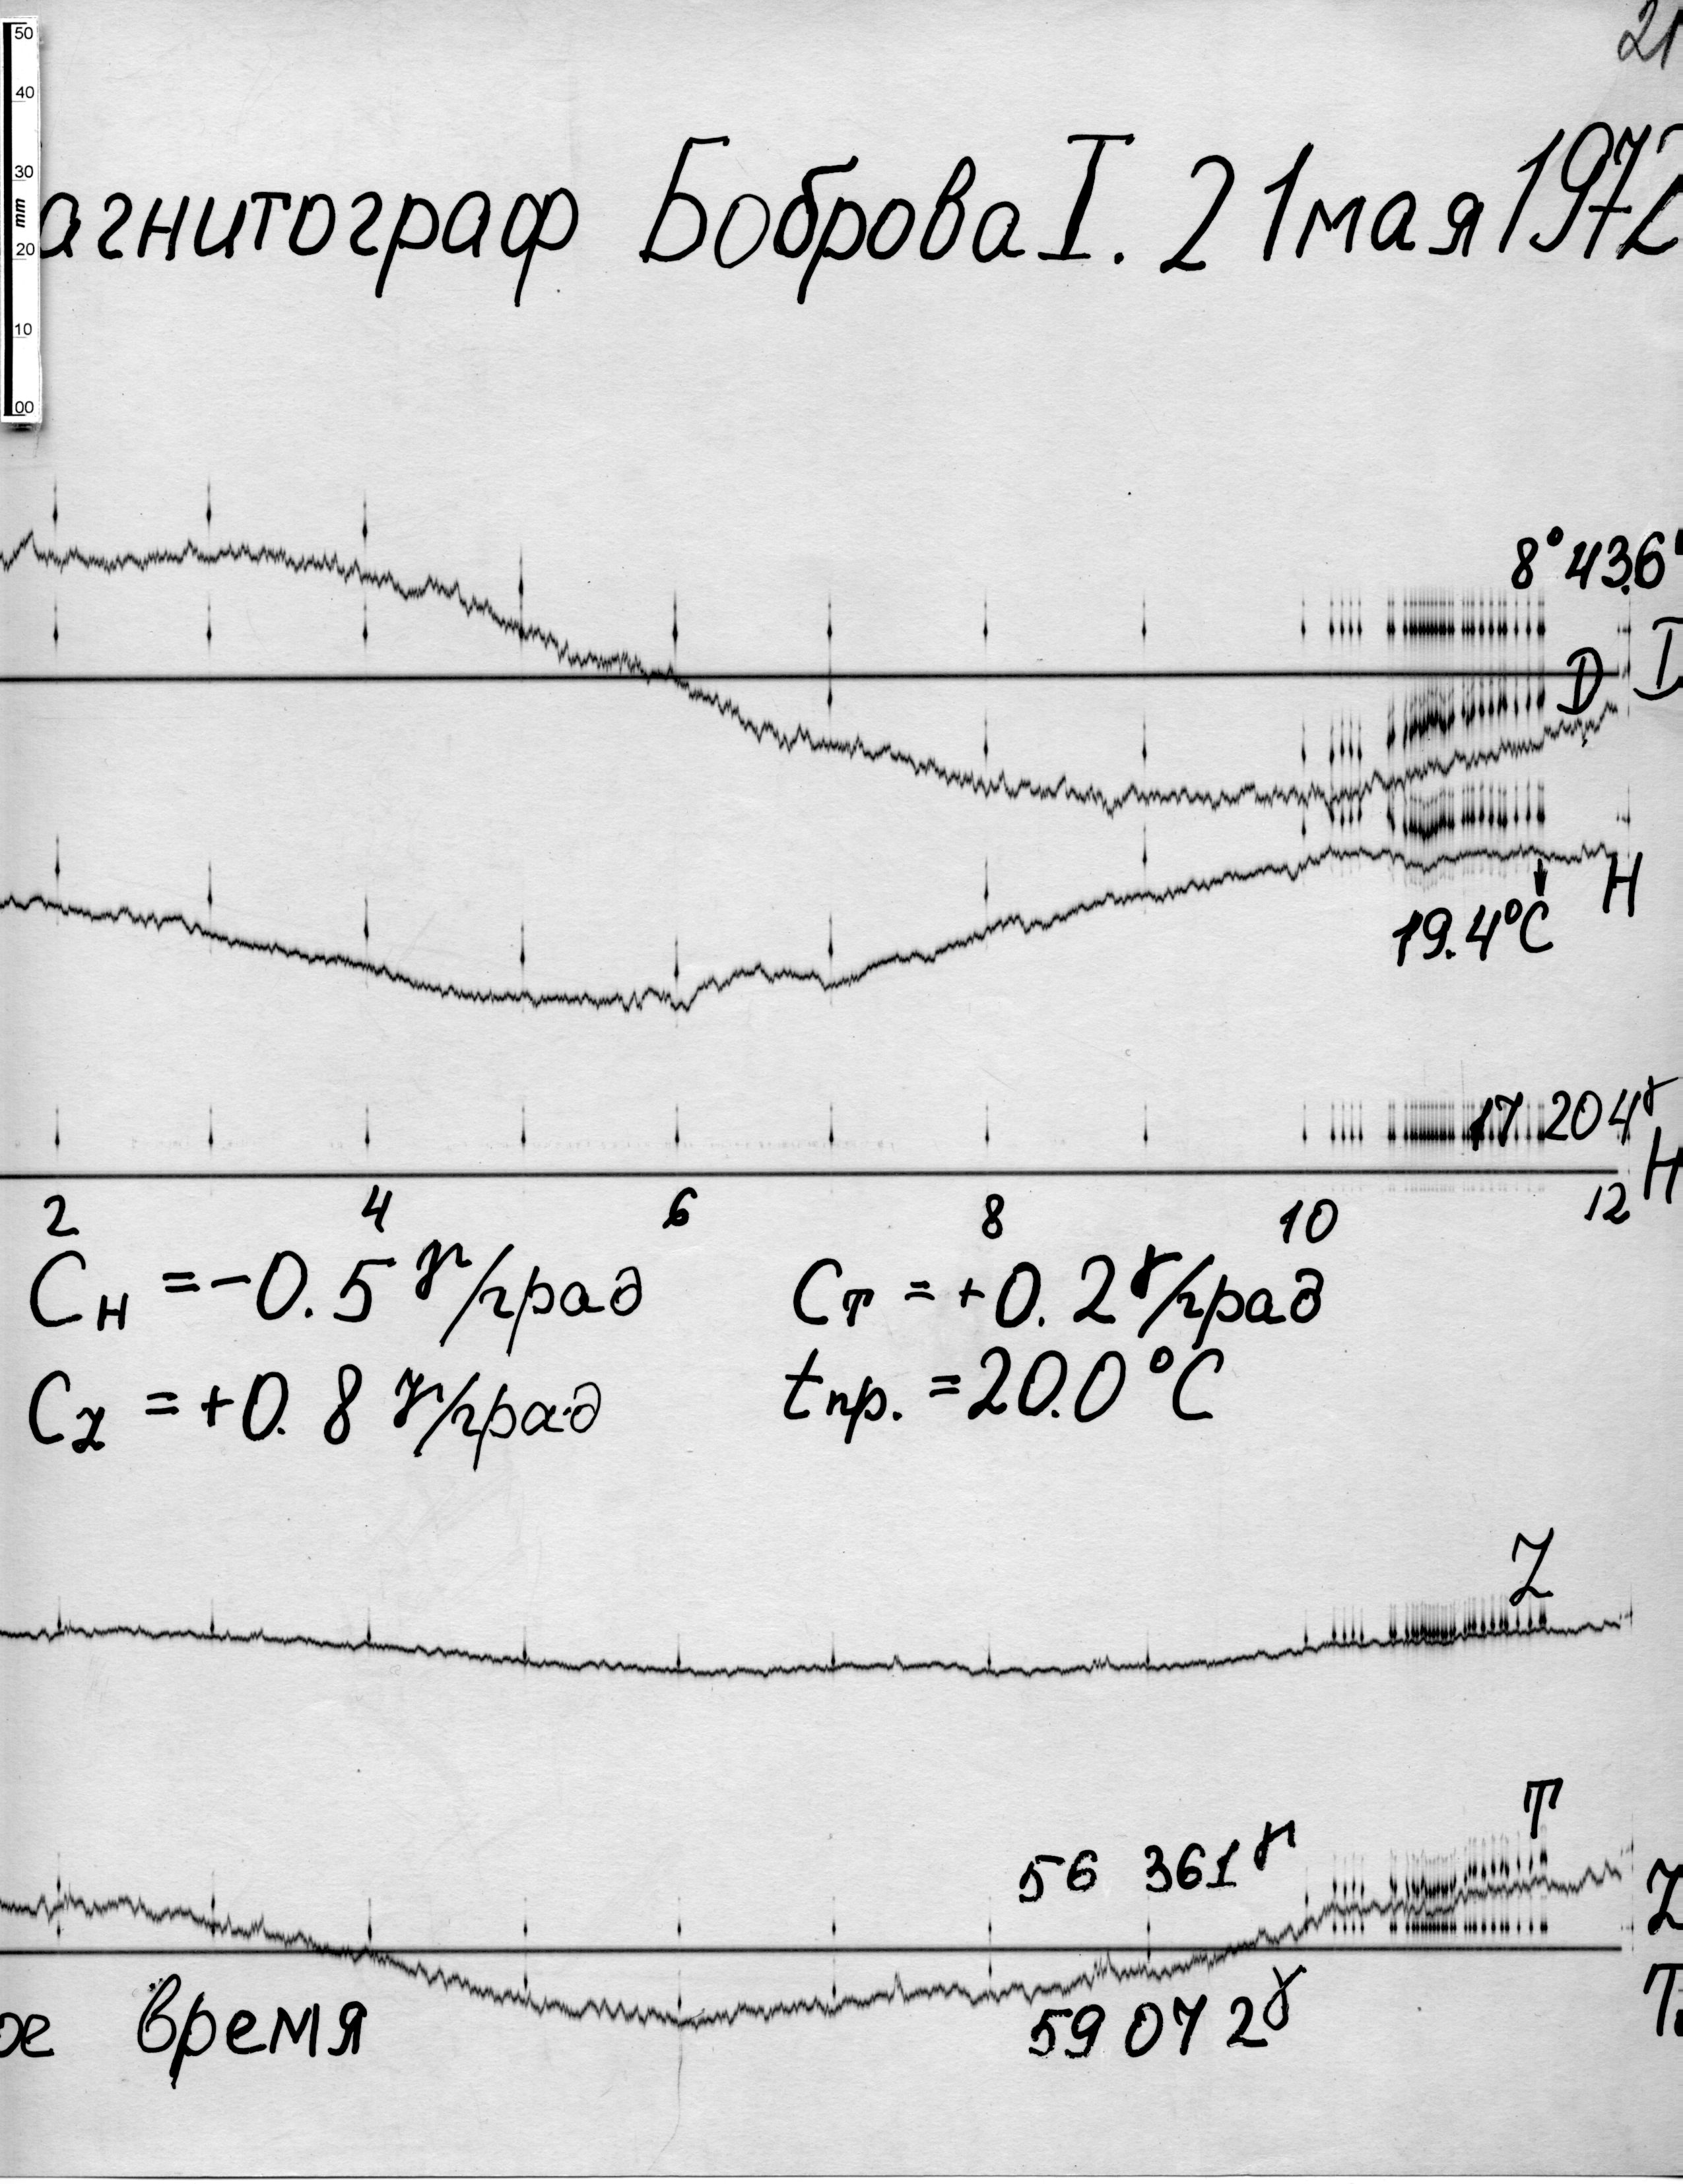 21
50
40
30
mm
20
10
00
агнитограф Боброва I. 21 мая 1972
8°43.6'
D
H
19.4°C
17 204γ
H
2 4 6 8 10 12
C_H = -0.5 γ/град
C_T = +0.2 γ/град
C_Z = +0.8 γ/град
t пр. = 20.0 °C
Z
T
56 361γ
Z
ое время
59 072γ
T